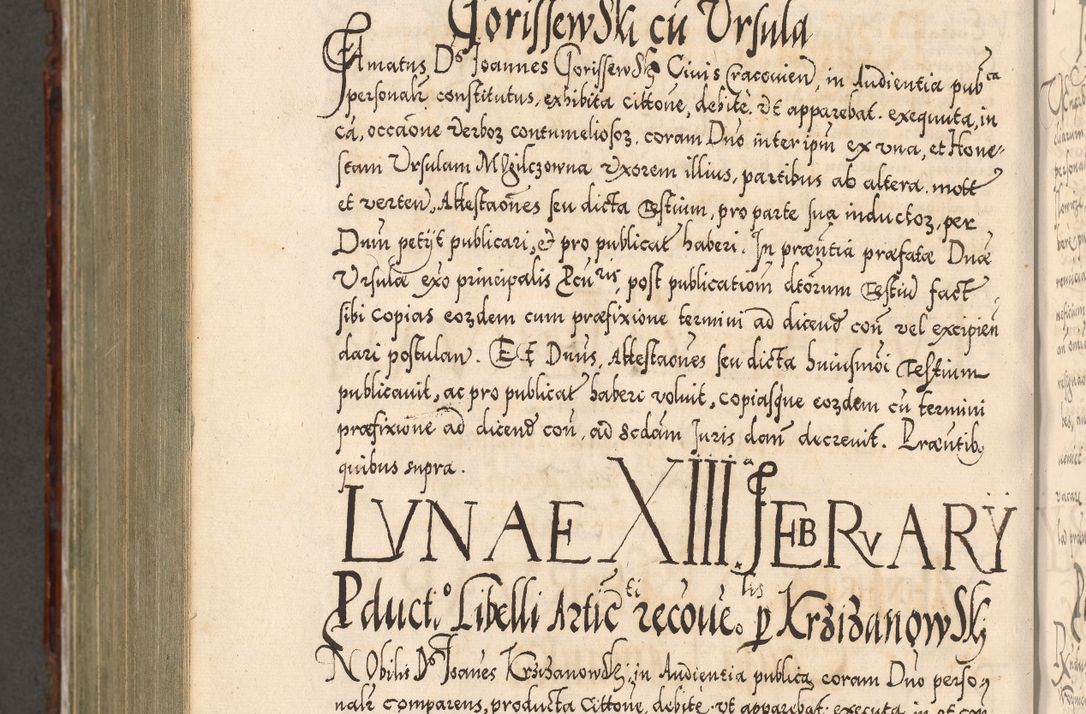 Gorissewski cũ Ursula
Famatus Ds Joannes Gorissewsky Civis Cracovien, in Audientia pubca
personalr constitutus, exhibita cittone, debite. vt apparebat. exequuta, in
ca, occaone verboz contumeliosoz. coram Dno inter ipm ex vna, et Hone-
stam Ursulam Mzilczowna Vxorem illius, partibus ab altera. mott
et verten, Attestaones seu dicta Testium, pro parte sua inductoz, per
Dnm petyt publicari, et pro publicat haberi. In præntia præfatæ Dnæ
Ursulæ exo principalis Pcuris, post publicatiom dtorum Testiu fact
sibi copias eozdem cum præfixione termini ad dicend con vel excipien
dari postulan. Et Dnus, Attestaones seu dicta huiusmoi Testium
publicavit, ac pro publicat haberi voluit, copiasque eozdem cũ termini
præfixione ad dicend con, ad scdam Juris dan decrevit. Præntib
quibus supra.
LVNAE XIIIIa. FEBRVARY
Pducto. Libelli Articti recoñelis p Krzizanowsky
Nobilis Ds Joañes Krzizanowsky, in Audientia publica coram Dno perso
nalr comparens, producta Cittone, debite. vt apparebat. executa in et con